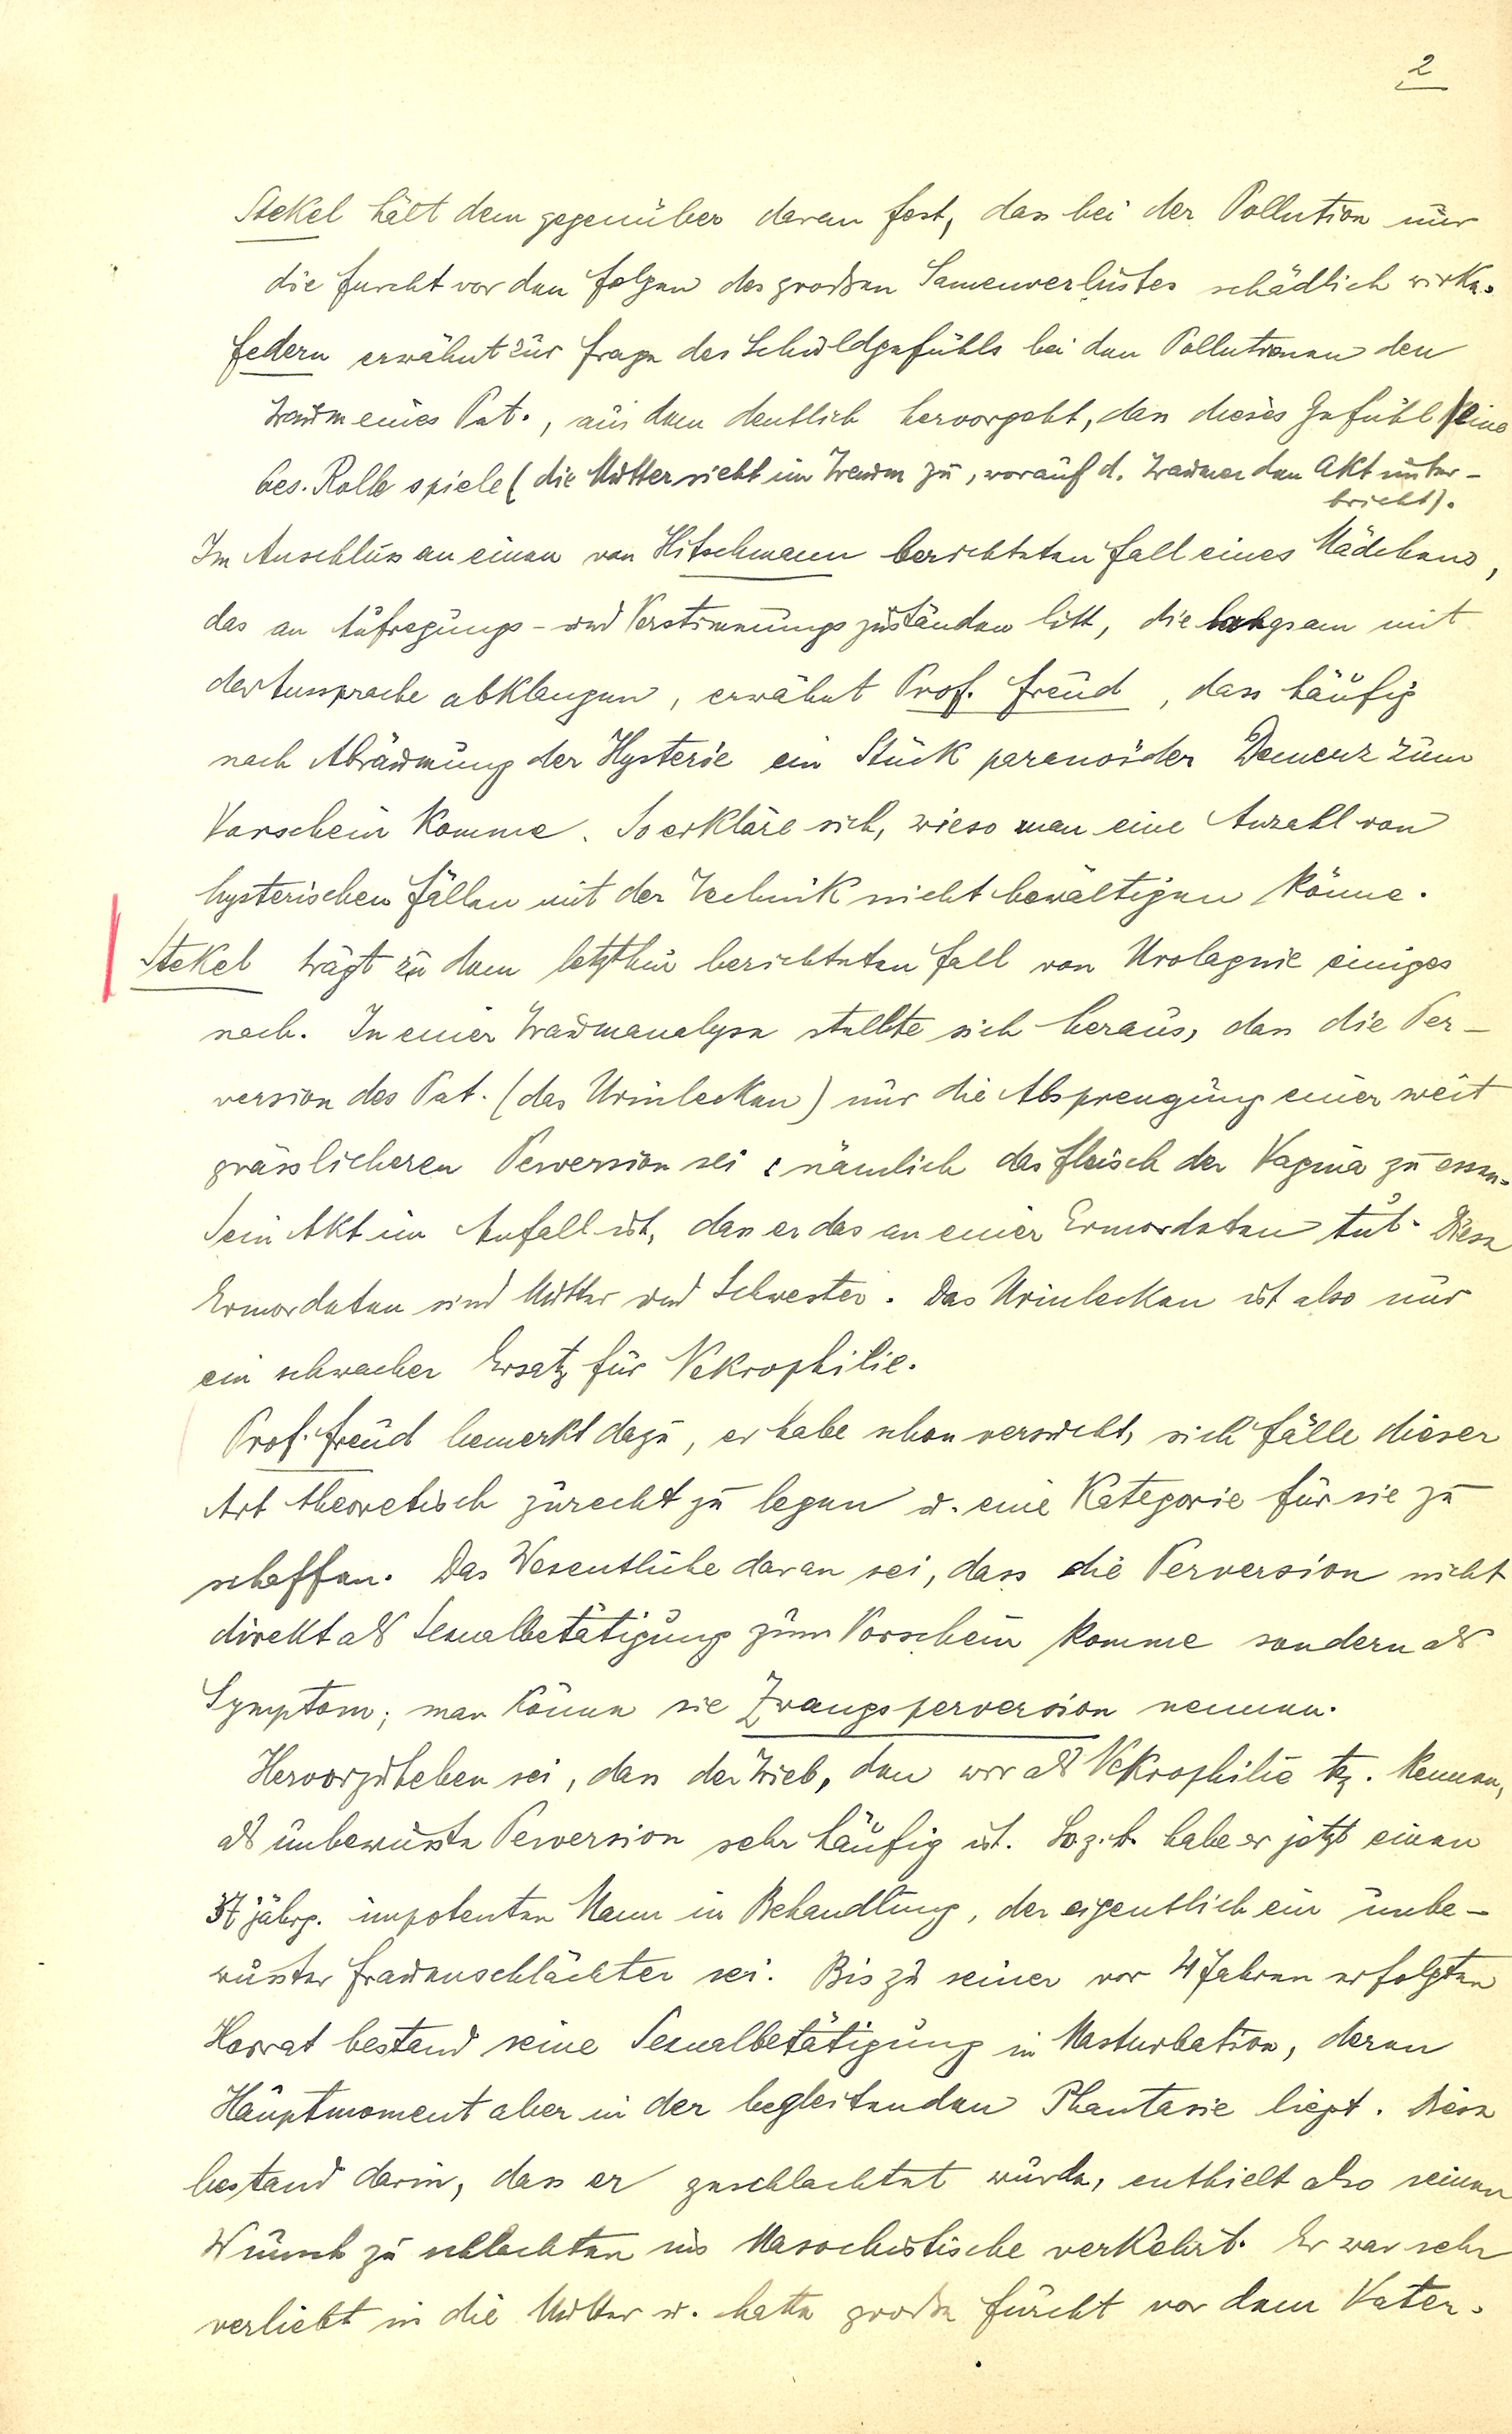 2
Stekel hält dem gegenüber daran fest, dass bei der Pollution nur
die Furcht vor den Folgen des großen Samenverlustes schädlich wirke.
Federn erwähnt zur Frage des Schuldgefühls bei den Pollutionen den
Traum eines Pat., aus dem deutlich hervorgeht, dass dieses Gefühl eine
bes. Rolle spiele (die Mutter sieht im Traum zu, worauf d. Träumer den Akt unter-
bricht).
Im Anschluss an einen von Hitschmann berichteten Fall eines Mädchens,
das an Aufregungs- und Verstimmungszuständen litt, die langsam mit
der Aussprache abklangen, erwähnt Prof. Freud, dass häufig
nach Abräumung der Hysterie ein Stück paranoider Demenz zum
Vorschein komme. So erkläre sich, wieso man eine Anzahl von
hysterischen Fällen mit der Technik nicht bewältigen könne.
Stekel trägt zu dem letzthin berichteten Fall von Urolagnie einiges
nach. In einer Traumanalyse stellte sich heraus, dass die Per-
version des Pat. (das Urinlecken) nur die Absprengung einer weit
grässlicheren Perversion sei: nämlich das Fleisch der Vagina zu essen.
Sein Akt im Anfall ist, dass er das an einer Ermordeten tut. Diese
Ermordeten sind Mutter und Schwester. Das Urinlecken ist also nur
ein schwacher Ersatz für Nekrophilie.
Prof. Freud bemerkt dazu, er habe schon versucht, sich Fälle dieser
Art theoretisch zurecht zu legen u. eine Kategorie für sie zu
schaffen. Das Wesentliche daran sei, dass die Perversion nicht
direkt als Sexualbetätigung zum Vorschein komme sondern als
Symptom; man könne sie Zwangsperversion nennen.
Hervorzuheben sei, dass der Trieb, den wir als Nekrophilie kennen,
als unbewusste Perversion sehr häufig ist. So z.b. habe er jetzt einen
37 jährg. impotenten Mann in Behandlung, der eigentlich ein unbe-
wusster Frauenschlächter sei. Bis zu seiner vor 4 Jahren erfolgten
Heirat bestand seine Sexualbetätigung in Masturbation, deren
Hauptmoment aber in der begleitenden Phantasie liegt. Diese
bestand darin, dass er geschlachtet wurde, enthielt also seinen
Wunsch zu schlachten ins Masochistische verkehrt. Er war sehr
verliebt in die Mutter u. hatte große Furcht vor dem Vater.